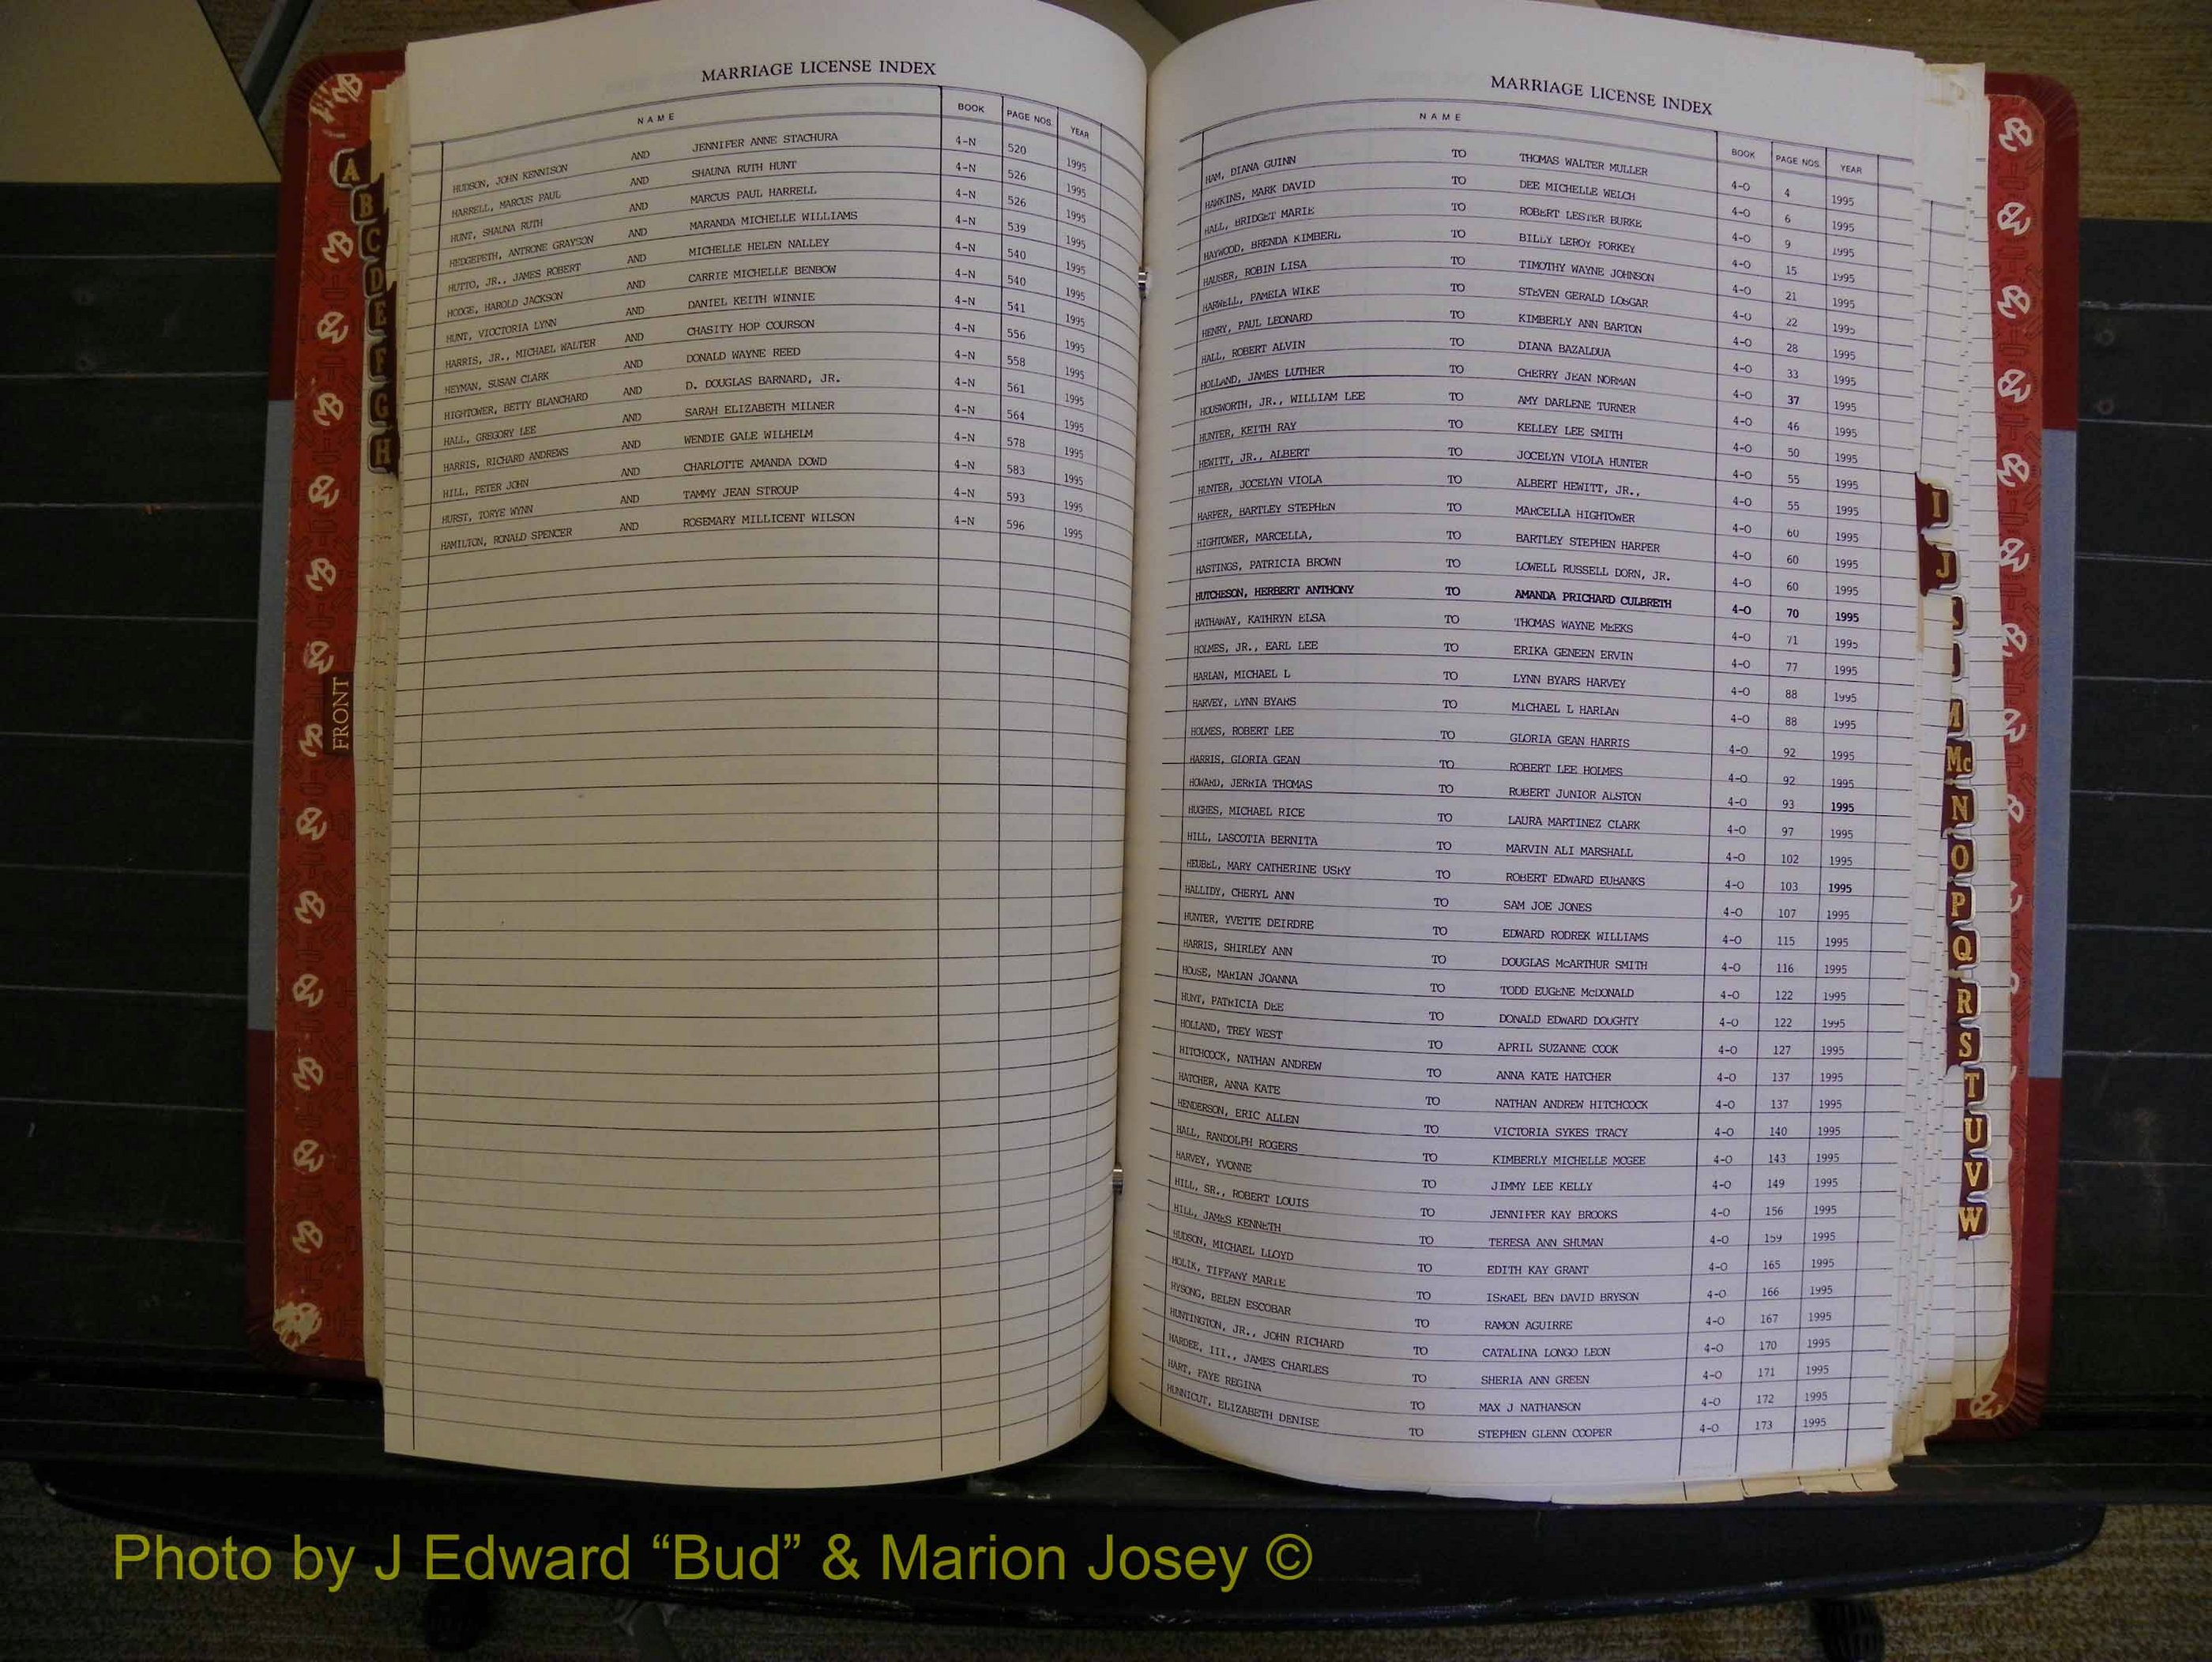 MARRIAGE LICENSE INDEX
NAME BOOK PAGE NOS. YEAR
HUDSON, JOHN KENNISON AND JENNIFER ANNE STACHURA 4-N 520 1995
HARRELL, MARCUS PAUL AND SHAUNA RUTH HUNT 4-N 526 1995
HUNT, SHAUNA RUTH AND MARCUS PAUL HARRELL 4-N 526 1995
HEDGEPETH, ANTRONE GRAYSON AND MARANDA MICHELLE WILLIAMS 4-N 539 1995
HUTTO, JR., JAMES ROBERT AND MICHELLE HELEN NALLEY 4-N 540 1995
HODGE, HAROLD JACKSON AND CARRIE MICHELLE BENBOW 4-N 540 1995
HUNT, VIOCTORIA LYNN AND DANIEL KEITH WINNIE 4-N 541 1995
HARRIS, JR., MICHAEL WALTER AND CHASITY HOP COURSON 4-N 556 1995
HEYMAN, SUSAN CLARK AND DONALD WAYNE REED 4-N 558 1995
HIGHTOWER, BETTY BLANCHARD AND D. DOUGLAS BARNARD, JR. 4-N 561 1995
HALL, GREGORY LEE AND SARAH ELIZABETH MILNER 4-N 564 1995
HARRIS, RICHARD ANDREWS AND WENDIE GALE WILHELM 4-N 578 1995
HILL, PETER JOHN AND CHARLOTTE AMANDA DOWD 4-N 583 1995
HURST, TORYE WYNN AND TAMMY JEAN STROUP 4-N 593 1995
HAMILTON, RONALD SPENCER AND ROSEMARY MILLICENT WILSON 4-N 596 1995
MARRIAGE LICENSE INDEX
NAME BOOK PAGE NOS. YEAR
HAM, DIANA GUINN TO THOMAS WALTER MULLER 4-O 4 1995
HAWKINS, MARK DAVID TO DEE MICHELLE WELCH 4-O 6 1995
HALL, BRIDGET MARIE TO ROBERT LESTER BURKE 4-O 9 1995
HAYWOOD, BRENDA KIMBERL TO BILLY LEROY FORKEY 4-O 15 1995
HAUSER, ROBIN LISA TO TIMOTHY WAYNE JOHNSON 4-O 21 1995
HARWELL, PAMELA WIKE TO STEVEN GERALD LOSGAR 4-O 22 1995
HENRY, PAUL LEONARD TO KIMBERLY ANN BARTON 4-O 28 1995
HALL, ROBERT ALVIN TO DIANA BAZALDUA 4-O 33 1995
HOLLAND, JAMES LUTHER TO CHERRY JEAN NORMAN 4-O 37 1995
HOUSWORTH, JR., WILLIAM LEE TO AMY DARLENE TURNER 4-O 46 1995
HUNTER, KEITH RAY TO KELLEY LEE SMITH 4-O 50 1995
HEWITT, JR., ALBERT TO JOCELYN VIOLA HUNTER 4-O 55 1995
HUNTER, JOCELYN VIOLA TO ALBERT HEWITT, JR., 4-O 55 1995
HARPER, BARTLEY STEPHEN TO MARCELLA HIGHTOWER 4-O 60 1995
HIGHTOWER, MARCELLA, TO BARTLEY STEPHEN HARPER 4-O 60 1995
HASTINGS, PATRICIA BROWN TO LOWELL RUSSELL DORN, JR. 4-O 60 1995
HUTCHESON, HERBERT ANTHONY TO AMANDA PRICHARD CULBRETH 4-O 70 1995
HATHAWAY, KATHRYN ELSA TO THOMAS WAYNE MEEKS 4-O 71 1995
HOLMES, JR., EARL LEE TO ERIKA GENEEN ERVIN 4-O 77 1995
HARLAN, MICHAEL L TO LYNN BYARS HARVEY 4-O 88 1995
HARVEY, LYNN BYARS TO MICHAEL L HARLAN 4-O 88 1995
HOLMES, ROBERT LEE TO GLORIA GEAN HARRIS 4-O 92 1995
HARRIS, GLORIA GEAN TO ROBERT LEE HOLMES 4-O 92 1995
HOWARD, JERRIA THOMAS TO ROBERT JUNIOR ALSTON 4-O 93 1995
HUGHES, MICHAEL RICE TO LAURA MARTINEZ CLARK 4-O 97 1995
HILL, LASCOTIA BERNITA TO MARVIN ALI MARSHALL 4-O 102 1995
HEUBEL, MARY CATHERINE USRY TO ROBERT EDWARD EUBANKS 4-O 103 1995
HALLIDY, CHERYL ANN TO SAM JOE JONES 4-O 107 1995
HUNTER, YVETTE DEIRDRE TO EDWARD RODREK WILLIAMS 4-O 115 1995
HARRIS, SHIRLEY ANN TO DOUGLAS McARTHUR SMITH 4-O 116 1995
HOUSE, MARIAN JOANNA TO TODD EUGENE McDONALD 4-O 122 1995
HUNT, PATRICIA DEE TO DONALD EDWARD DOUGHTY 4-O 122 1995
HOLLAND, TREY WEST TO APRIL SUZANNE COOK 4-O 127 1995
HITCHCOCK, NATHAN ANDREW TO ANNA KATE HATCHER 4-O 137 1995
HATCHER, ANNA KATE TO NATHAN ANDREW HITCHCOCK 4-O 137 1995
HENDERSON, ERIC ALLEN TO VICTORIA SYKES TRACY 4-O 140 1995
HALL, RANDOLPH ROGERS TO KIMBERLY MICHELLE MCGEE 4-O 143 1995
HARVEY, YVONNE TO JIMMY LEE KELLY 4-O 149 1995
HILL, SR., ROBERT LOUIS TO JENNIFER KAY BROOKS 4-O 156 1995
HILL, JAMES KENNETH TO TERESA ANN SHUMAN 4-O 159 1995
HUDSON, MICHAEL LLOYD TO EDITH KAY GRANT 4-O 165 1995
HOLIK, TIFFANY MARIE TO ISRAEL BEN DAVID BRYSON 4-O 166 1995
HYSONG, BELEN ESCOBAR TO RAMON AGUIRRE 4-O 167 1995
HUNTINGTON, JR., JOHN RICHARD TO CATALINA LONGO LEON 4-O 170 1995
HARDEE, III., JAMES CHARLES TO SHERIA ANN GREEN 4-O 171 1995
HART, FAYE REGINA TO MAX J NATHANSON 4-O 172 1995
HUNNICUT, ELIZABETH DENISE TO STEPHEN GLENN COOPER 4-O 173 1995
A
B
C
D
E
F
G
H
FRONT
I
J
Mc
N
O
P
Q
R
S
T
U
V
W
Photo by J Edward “Bud” & Marion Josey ©